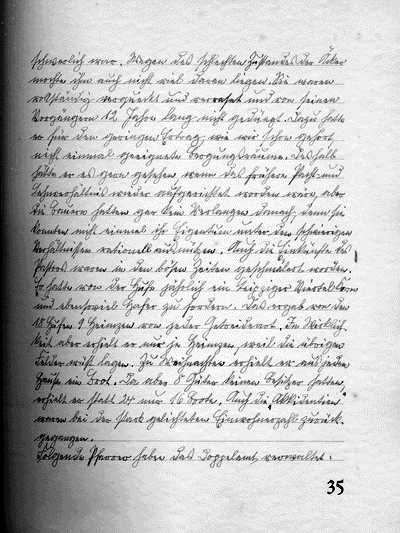 schwerlich war. Wegen des schlechten Zustandes der Äcker
mochte ihm auch nicht viel daran liegen. Sie waren
vollständig verqueckt und verrast und von seinen
Vorgängern 12 Jahre lang nicht gedüngt. Dazu hatte
er für den geringen Ertrag, wie wir schon gehört,
nicht einmal geeignete Bergungsräume. Deshalb
hätte er es gern gesehen, wenn das frühere Pacht- und
Lehnverhältnis wieder aufgerichtet worden wäre, aber
die Bauern hatten gar kein Verlangen danach, denn sie
konnten nicht einmal ihr Eigentum unter den schwierigen
Verhältnissen rationell ausnützen. Auch die Einkünfte des
Pastors waren in den bösen Zeiten geschmälert worden.
So hatte von der Hufe jährlich ein Leipziger Viertel Korn
und ebensoviel Hafer zu fordern. Das ergab von den
18 Hufen 9 Heimzen von jeder Getreideart. In Wirklich-
keit aber erhielt er nur je Heimzen, weil die übrigen
Felder wüst lagen. Zu Weihnachten erhielt er aus jedem
Hause ein Brot. Da aber 8 Güter keinen Besitzer hatten,
erhielt er statt 24 nur 16 Brote. Auch die Akzidentien
waren bei der stark gelichteten Einwohnerzahl zurück-
gegangen.
Folgende Pfarrer haben das Doppelamt verwaltet:
35